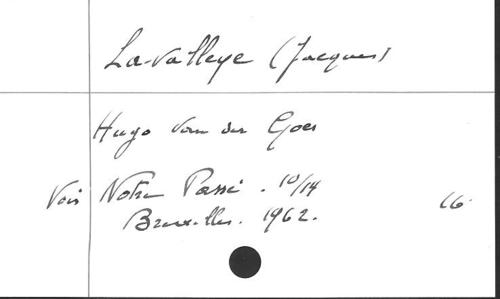 Lavalleye (Jacques)
Hugo van der Goes
Voir Notre Passé. 10/14
Bruxelles. 1962. 16.